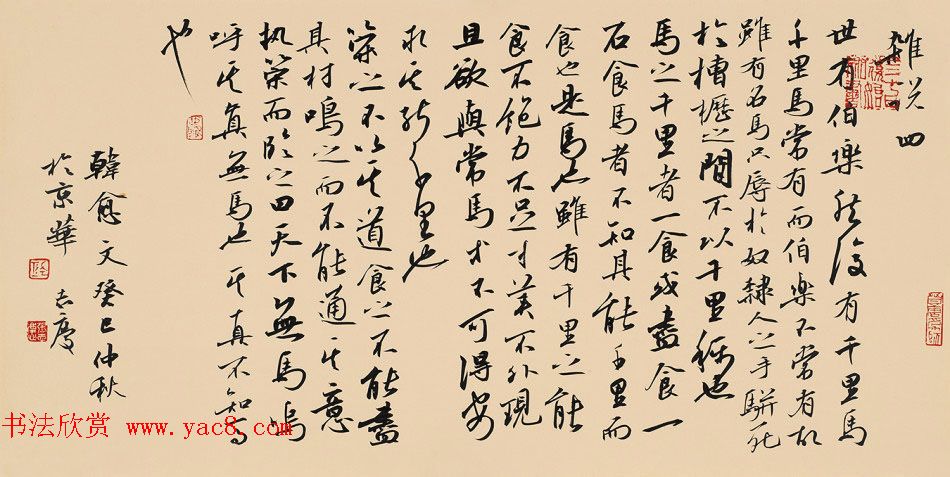 雜说四
世有伯樂然後有千里馬
千里馬常有而伯樂不常有故
雖有名馬只辱於奴隸人之手駢死
於槽櫪之間不以千里稱也
馬之千里者一食或盡食一
石食馬者不知其能千里而
食也是馬也雖有千里之能
食不飽力不足才美不外現
且欲與常馬才不可得安
求其能千里也
策之不以其道食之不能盡
其材鳴之而不能通其意
执策而臨之曰天下無馬嗚
呼其真無馬也其真不知馬
也
韓愈文癸巳仲秋
於京華
书法欣赏 www.yac8.com